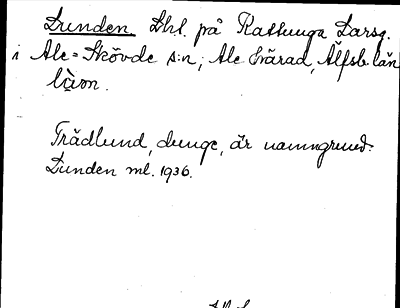 Lunden Lht. på Kattunga Larsg.
i Ale-Skövde s:n, Ale härad, Älfsb. län
Trädlund, dunge, är namngrund.
Lunden ml. 1936.